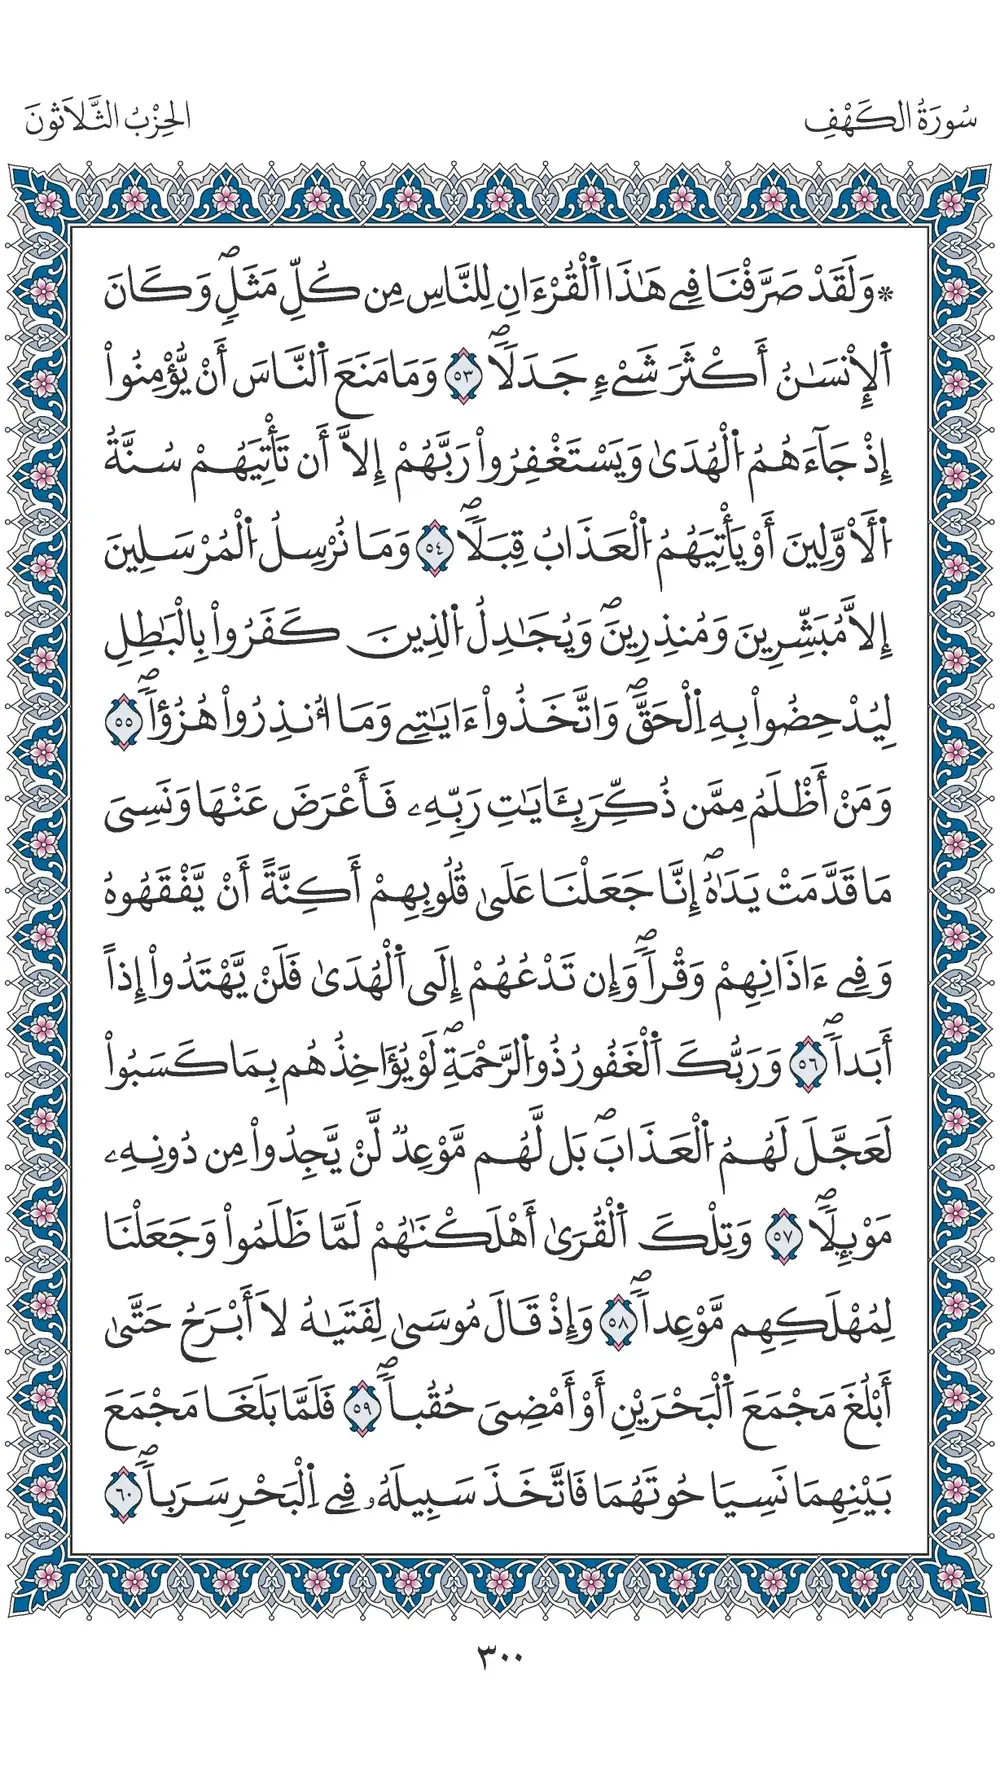 سُورَةُ الكَهْفِ
الحِزْبُ الثَّلَاثُونَ
* وَلَقَدْ صَرَّفْنَا فِے هَٰذَا اَ۬لْقُرْءَانِ لِلنَّاسِ مِن كُلِّ مَثَلٖۖ وَكَانَ
اَ۬لِانْسَٰنُ أَكْثَرَ شَےْءٖ جَدَلاٗۖ ٥٣ وَمَا مَنَعَ اَ۬لنَّاسَ أَنْ يُّؤْمِنُواْ
إِذْ جَآءَهُمُ اُ۬لْهُد۪يٰ وَيَسْتَغْفِرُواْ رَبَّهُمُۥٓ إِلَّآ أَن تَأْتِيَهُمْ سُنَّةُ
اُ۬لَاوَّلِينَ أَوْ يَأْتِيَهُمُ اُ۬لْعَذَابُ قِبَلاٗۖ ٥٤ وَمَا نُرْسِلُ اُ۬لْمُرْسَلِينَ
إِلَّا مُبَشِّرِينَ وَمُنذِرِينَۖ وَيُجَٰدِلُ اُ۬لذِينَ كَفَرُواْ بِالْبَٰطِلِ
لِيُدْحِضُواْ بِهِ اِ۬لْحَقَّۖ وَاتَّخَذُوٓاْ ءَايَٰتِے وَمَآ أُنذِرُواْ هُزُؤاٗۖ ٥٥
وَمَنْ أَظْلَمُ مِمَّن ذُكِّرَ بِـَٔايَٰتِ رَبِّهِۦ فَأَعْرَضَ عَنْهَا وَنَسِيَ
مَا قَدَّمَتْ يَدَٰهُۖ إِنَّا جَعَلْنَا عَلَيٰ قُلُوبِهِمْ أَكِنَّةً أَنْ يَّفْقَهُوهُ
وَفِے ءَاذَانِهِمْ وَقْراٗۖ وَإِن تَدْعُهُمْ إِلَي اَ۬لْهُدَيٰ فَلَنْ يَّهْتَدُوٓاْ إِذاً
أَبَداٗۖ ٥٦ وَرَبُّكَ اَ۬لْغَفُورُ ذُو اُ۬لرَّحْمَةِۖ لَوْ يُؤَاخِذُهُم بِمَا كَسَبُواْ
لَعَجَّلَ لَهُمُ اُ۬لْعَذَابَۖ بَل لَّهُم مَّوْعِدٞ لَّنْ يَّجِدُواْ مِن دُونِهِۦ
مَوْئِلاٗۖ ٥٧ وَتِلْكَ اَ۬لْقُرَيٰٓ أَهْلَكْنَٰهُمْ لَمَّا ظَلَمُواْ وَجَعَلْنَا
لِمُهْلَكِهِم مَّوْعِداٗۖ ٥٨ وَإِذْ قَالَ مُوسَيٰ لِفَتَيٰهُ لَآ أَبْرَحُ حَتَّيٰٓ
أَبْلُغَ مَجْمَعَ اَ۬لْبَحْرَيْنِ أَوْ أَمْضِيَ حُقُباٗۖ ٥٩ فَلَمَّا بَلَغَا مَجْمَعَ
بَيْنِهِمَا نَسِيَا حُوتَهُمَا فَاتَّخَذَ سَبِيلَهُۥ فِے اِ۬لْبَحْرِ سَرَباٗۖ ٦٠
٣٠٠